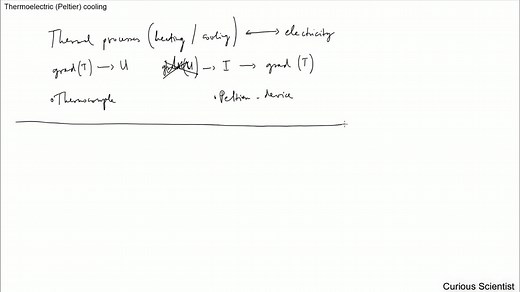 Thermoelectric (Peltier) cooling
Thermal processes (heating / cooling) ⟷ electricity
grad(T) → U → I → grad (T)
• Thermocouple • Peltier-device
Curious Scientist